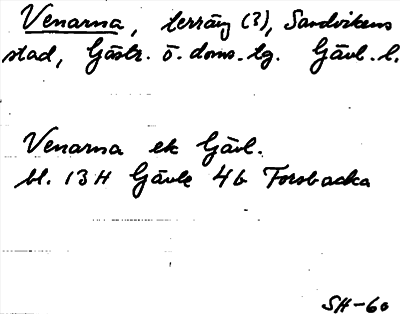 Venarna, terräng (?), Sandvikens
stad, Gästr. ö. doms.tg. Gävl. l.
Venarna ek Gävl.
bl. 13H Gävle 4b Forsbacka
SH-60